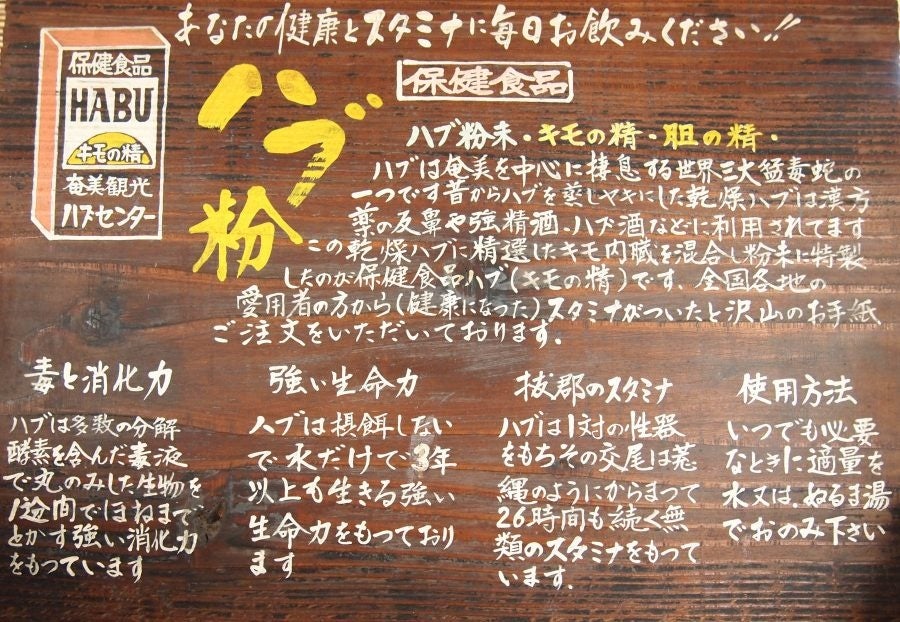 あなたの健康とスタミナに毎日お飲みください!!
保健食品
HABU
キモの精
奄美観光
ハブセンター
ハブ
粉
保健食品
ハブ粉末・キモの精・胆の精・
ハブは奄美を中心に棲息する世界三大猛毒蛇の
一つです昔からハブを蒸しヤキにした乾燥ハブは漢方
薬の反鼻や強精酒、ハブ酒などに利用されてます
この乾燥ハブに精選したキモ内臓を混合し粉末に特製
したのが保健食品ハブ(キモの精)です、全国各地の
愛用者の方から(健康になった)スタミナがついたと沢山のお手紙
ご注文をいただいております.
毒と消化力
ハブは多数の分解
酵素を含んだ毒液
で丸のみした生物を
1週間でほねまで
とかす強い消化力
をもっています
強い生命力
ハブは摂餌しない
で水だけで3年
以上も生きる強い
生命力をもっており
ます
抜郡のスタミナ
ハブは1対の性器
をもちその交尾は荒
縄のようにからまって
26時間も続く無
類のスタミナをもって
います.
使用方法
いつでも必要
なときに適量を
水又は、ぬるま湯
でおのみ下さい